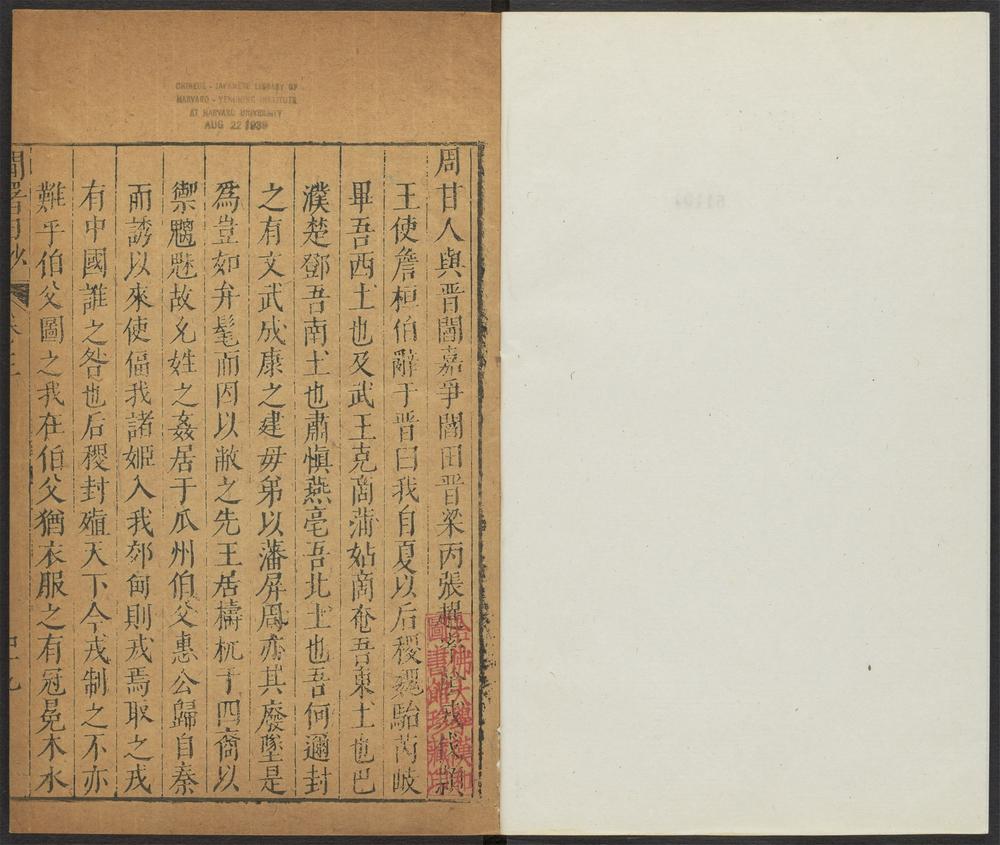 CHINESE - JAPANESE LIBRARY OF
HARVARD - YENCHING INSTITUTE
AT HARVARD UNIVERSITY
AUG 22 1939
周甘人與晋閻嘉爭閻田晋梁丙張趯率隂戎伐潁
王使詹桓伯辭于晋曰我自夏以后稷魏駘芮岐
畢吾西土也及武王克商蒲姑商奄吾東土也巴
濮楚鄧吾南土也肅慎燕亳吾北土也吾何邇封
之有文武成康之建毋弟以藩屏周亦其廢墜是
爲豈如弁髦而因以敝之先王居檮杌于四裔以
禦魑魅故允姓之姦居于瓜州伯父惠公歸自秦
而誘以來使偪我諸姬入我郊甸則戎焉取之戎
有中國誰之咎也后稷封殖天下今戎制之不亦
難乎伯父圖之我在伯父猶衣服之有冠冕木水
哈佛大學漢和
圖書館珍藏印